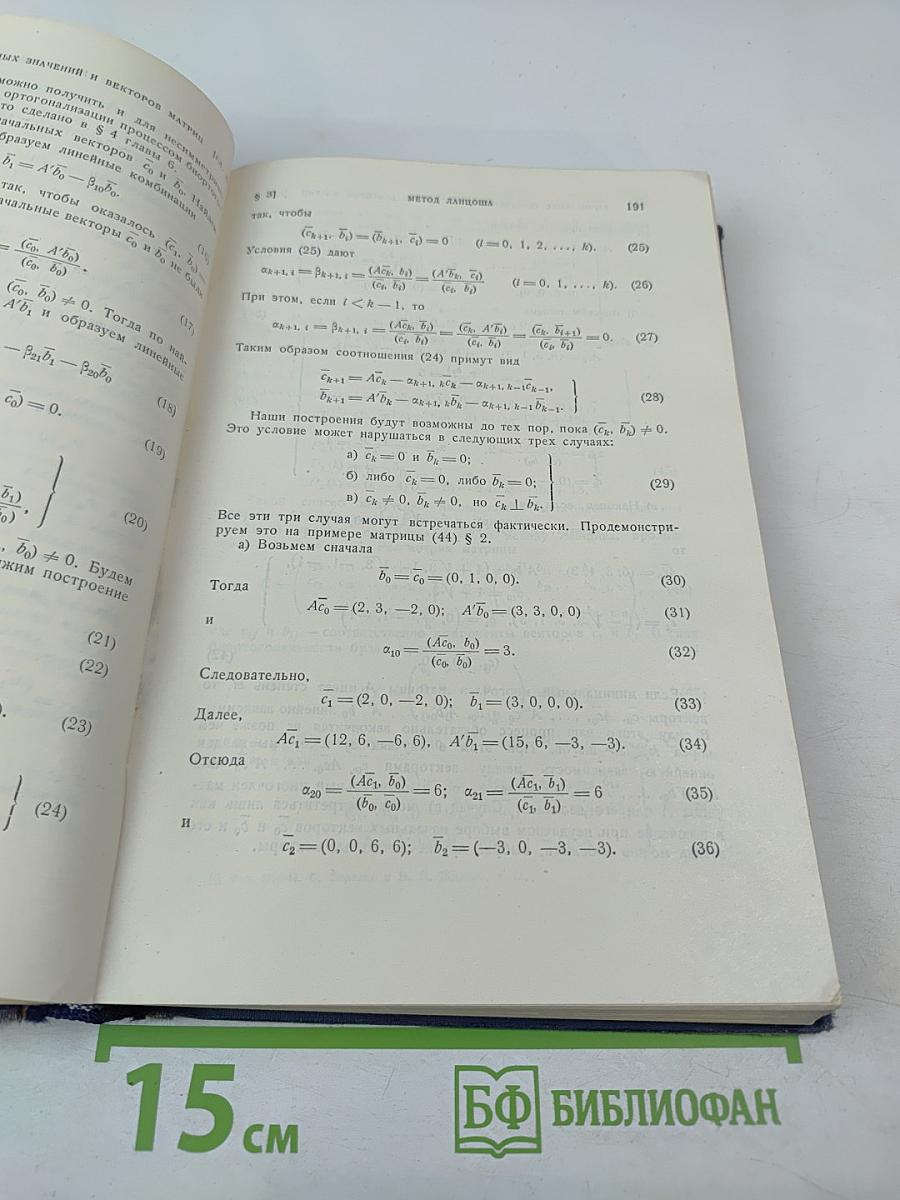 ных значений и векторов матриц
можно получить и для несимметричн
ортогонализации процессом биортого
то сделано в § 4 главы 6.
начальных векторов c̄₀ и b̄₀. Найдем
образуем линейные комбинации
b̄₁ = A′b̄₀ — β₁₀b̄₀.
(16)
так, чтобы оказалось (c̄₁, b̄₀) =
начальные векторы c̄₀ и b̄₀ не были
= (c̄₀, A′b̄₀) / (c̄₀, b̄₀).
(17)
(c̄₀, b̄₀) ≠ 0. Тогда по най-
A′b̄₁ и образуем линейные
— β₂₁b̄₁ — β₂₀b̄₀
(18)
c̄₀) = 0.
(19)
b̄₁) / b̄₀),
(20)
, b̄₀) ≠ 0. Будем
жим построение
(21)
(22)
(23)
(24)
§ 3] МЕТОД ЛАНЦОША 191
так, чтобы
(c̄ₖ₊₁, b̄ᵢ) = (b̄ₖ₊₁, c̄ᵢ) = 0 (i = 0, 1, 2, ..., k). (25)
Условия (25) дают
αₖ₊₁, ᵢ = βₖ₊₁, ᵢ = (Ac̄ₖ, b̄ᵢ) / (c̄ᵢ, b̄ᵢ) = (A′b̄ₖ, c̄ᵢ) / (c̄ᵢ, b̄ᵢ) (i = 0, 1, ..., k). (26)
При этом, если i < k — 1, то
αₖ₊₁, ᵢ = βₖ₊₁, ᵢ = (Ac̄ₖ, b̄ᵢ) / (c̄ᵢ, b̄ᵢ) = (c̄ₖ, A′b̄ᵢ) / (c̄ᵢ, b̄ᵢ) = (c̄ₖ, b̄ᵢ₊₁) / (c̄ᵢ, b̄ᵢ) = 0. (27)
Таким образом соотношения (24) примут вид
c̄ₖ₊₁ = Ac̄ₖ — αₖ₊₁, ₖc̄ₖ — αₖ₊₁, ₖ₋₁c̄ₖ₋₁,
b̄ₖ₊₁ = A′b̄ₖ — αₖ₊₁, ₖb̄ₖ — αₖ₊₁, ₖ₋₁b̄ₖ₋₁. } (28)
Наши построения будут возможны до тех пор, пока (c̄ₖ, b̄ₖ) ≠ 0.
Это условие может нарушаться в следующих трех случаях:
а) c̄ₖ = 0 и b̄ₖ = 0;
б) либо c̄ₖ = 0, либо b̄ₖ = 0; } (29)
в) c̄ₖ ≠ 0, b̄ₖ ≠ 0, но c̄ₖ ⊥ b̄ₖ.
Все эти три случая могут встречаться фактически. Продемонстри-
руем это на примере матрицы (44) § 2.
а) Возьмем сначала
b̄₀ = c̄₀ = (0, 1, 0, 0). (30)
Тогда
Ac̄₀ = (2, 3, —2, 0); A′b̄₀ = (3, 3, 0, 0) (31)
и
α₁₀ = (Ac̄₀, b₀) / (c̄₀, b̄₀) = 3. (32)
Следовательно,
c̄₁ = (2, 0, —2, 0); b̄₁ = (3, 0, 0, 0). (33)
Далее,
Ac̄₁ = (12, 6, —6, 6), A′b̄₁ = (15, 6, —3, —3). (34)
Отсюда
α₂₀ = (Ac̄₁, b̄₀) / (b̄₀, c̄₀) = 6; α₂₁ = (Ac̄₁, b̄₁) / (c₁, b̄₁) = 6 (35)
и
c̄₂ = (0, 0, 6, 6); b̄₂ = (—3, 0, —3, —3). (36)
15 см
БФ БИБЛИОФАН